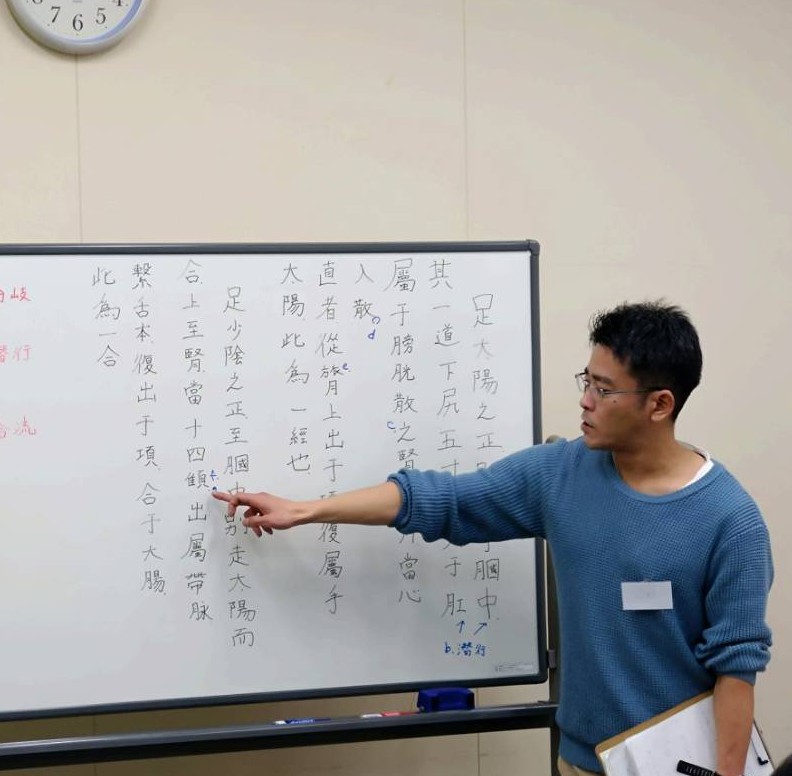 足太陽之正于膕中
其一道下尻五于肛
屬于膀胱散之腎當心
入散
直者從膂上出于項復屬于
太陽此為一經也
足少陰之正至膕中別走太陽而
合上至腎當十四顀出屬帶脉
繫舌本復出于項合于大腸
此為一合
b.潜行
c.
d
e.
f.
岐
潜行
合流
7 6 5 4